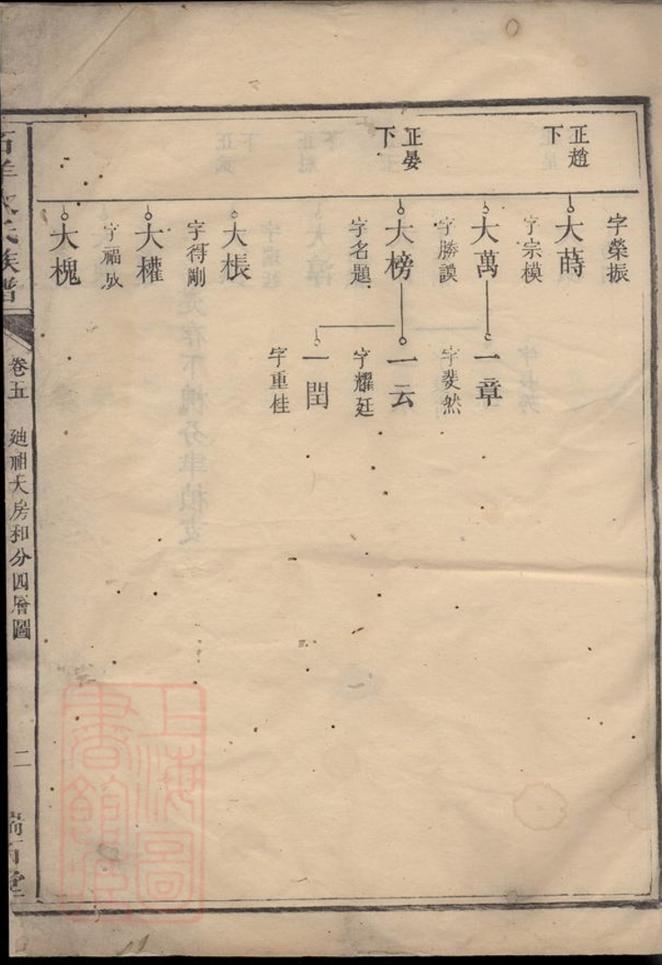 正趙下
正晏下
字榮振
大蒔
字宗模
大萬
字勝謨
大榜
字名題
大棖
字得剛
大權
字福攸
大槐
一章
字斐然
一云
字耀廷
一閏
字重桂
氏族譜
卷五
廸祖大房和分四層圖
二
堂
上海圖書館藏